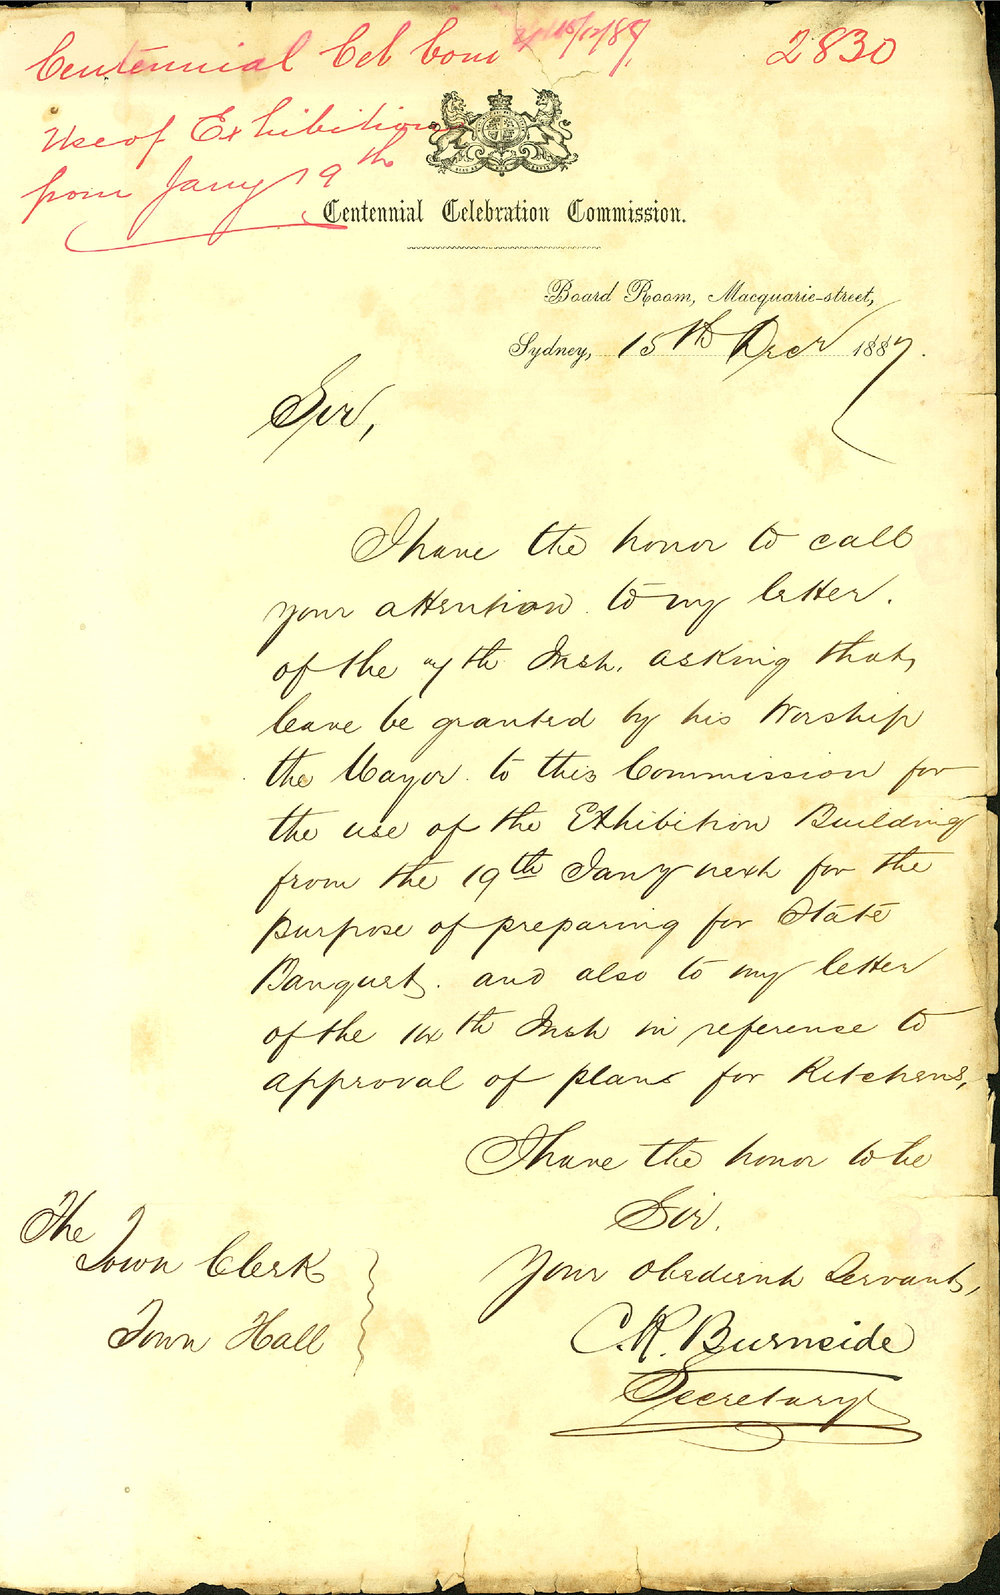 Centennial Cel Com 15/12/87
2830
Use of Exhibition
from Jany 19th
Centennial Celebration Commission.
Board Room, Macquarie-street,
Sydney, 15th Decr 1887.
Sir,
I have the honor to call
your attention to my letter.
of the 7th Inst. asking that
leave be granted by his Worship
the Mayor to this Commission for
the use of the Exhibition Building
from the 19th Jany next for the
purpose of preparing for State
Banquet. and also to my letter
of the 14th Inst in reference to
approval of plans for Kitchens,
I have the honor to be
Sir.
Your obedient Servant,
C. R. Burnside
Secretary
The
Town Clerk
Town Hall